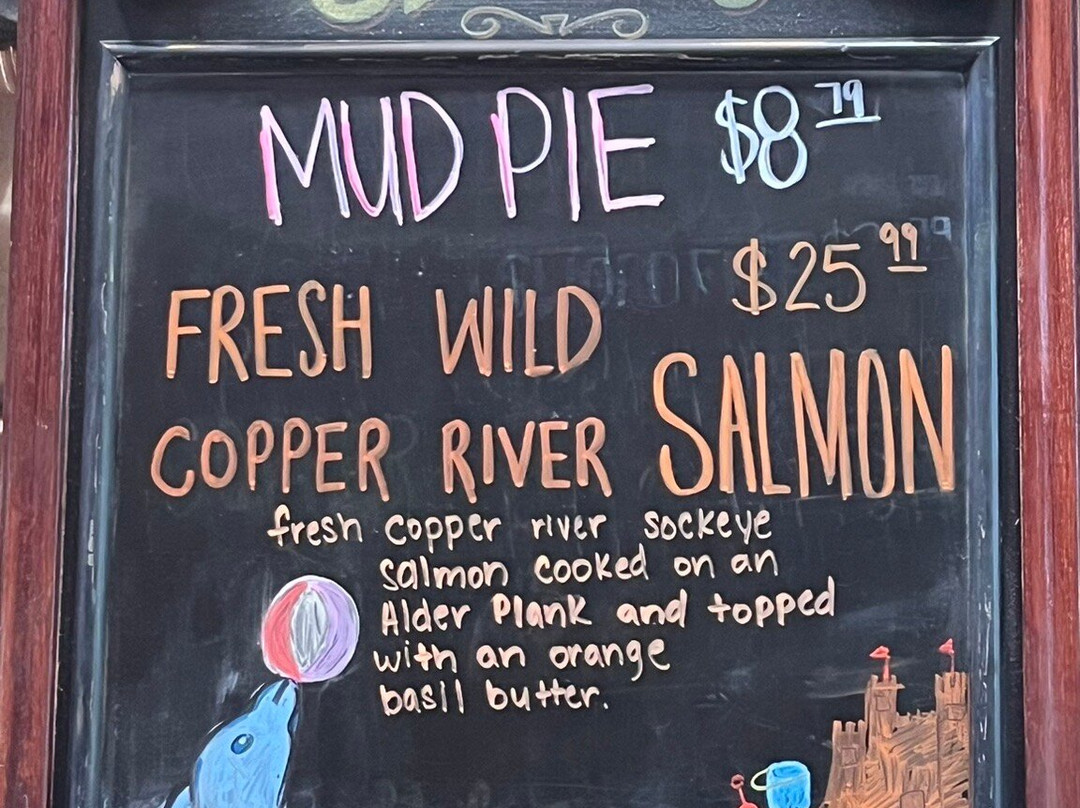 MUD PIE $8 79
$25 99
FRESH WILD
COPPER RIVER SALMON
fresh copper river sockeye
salmon cooked on an
Alder Plank and topped
with an orange
basil butter.